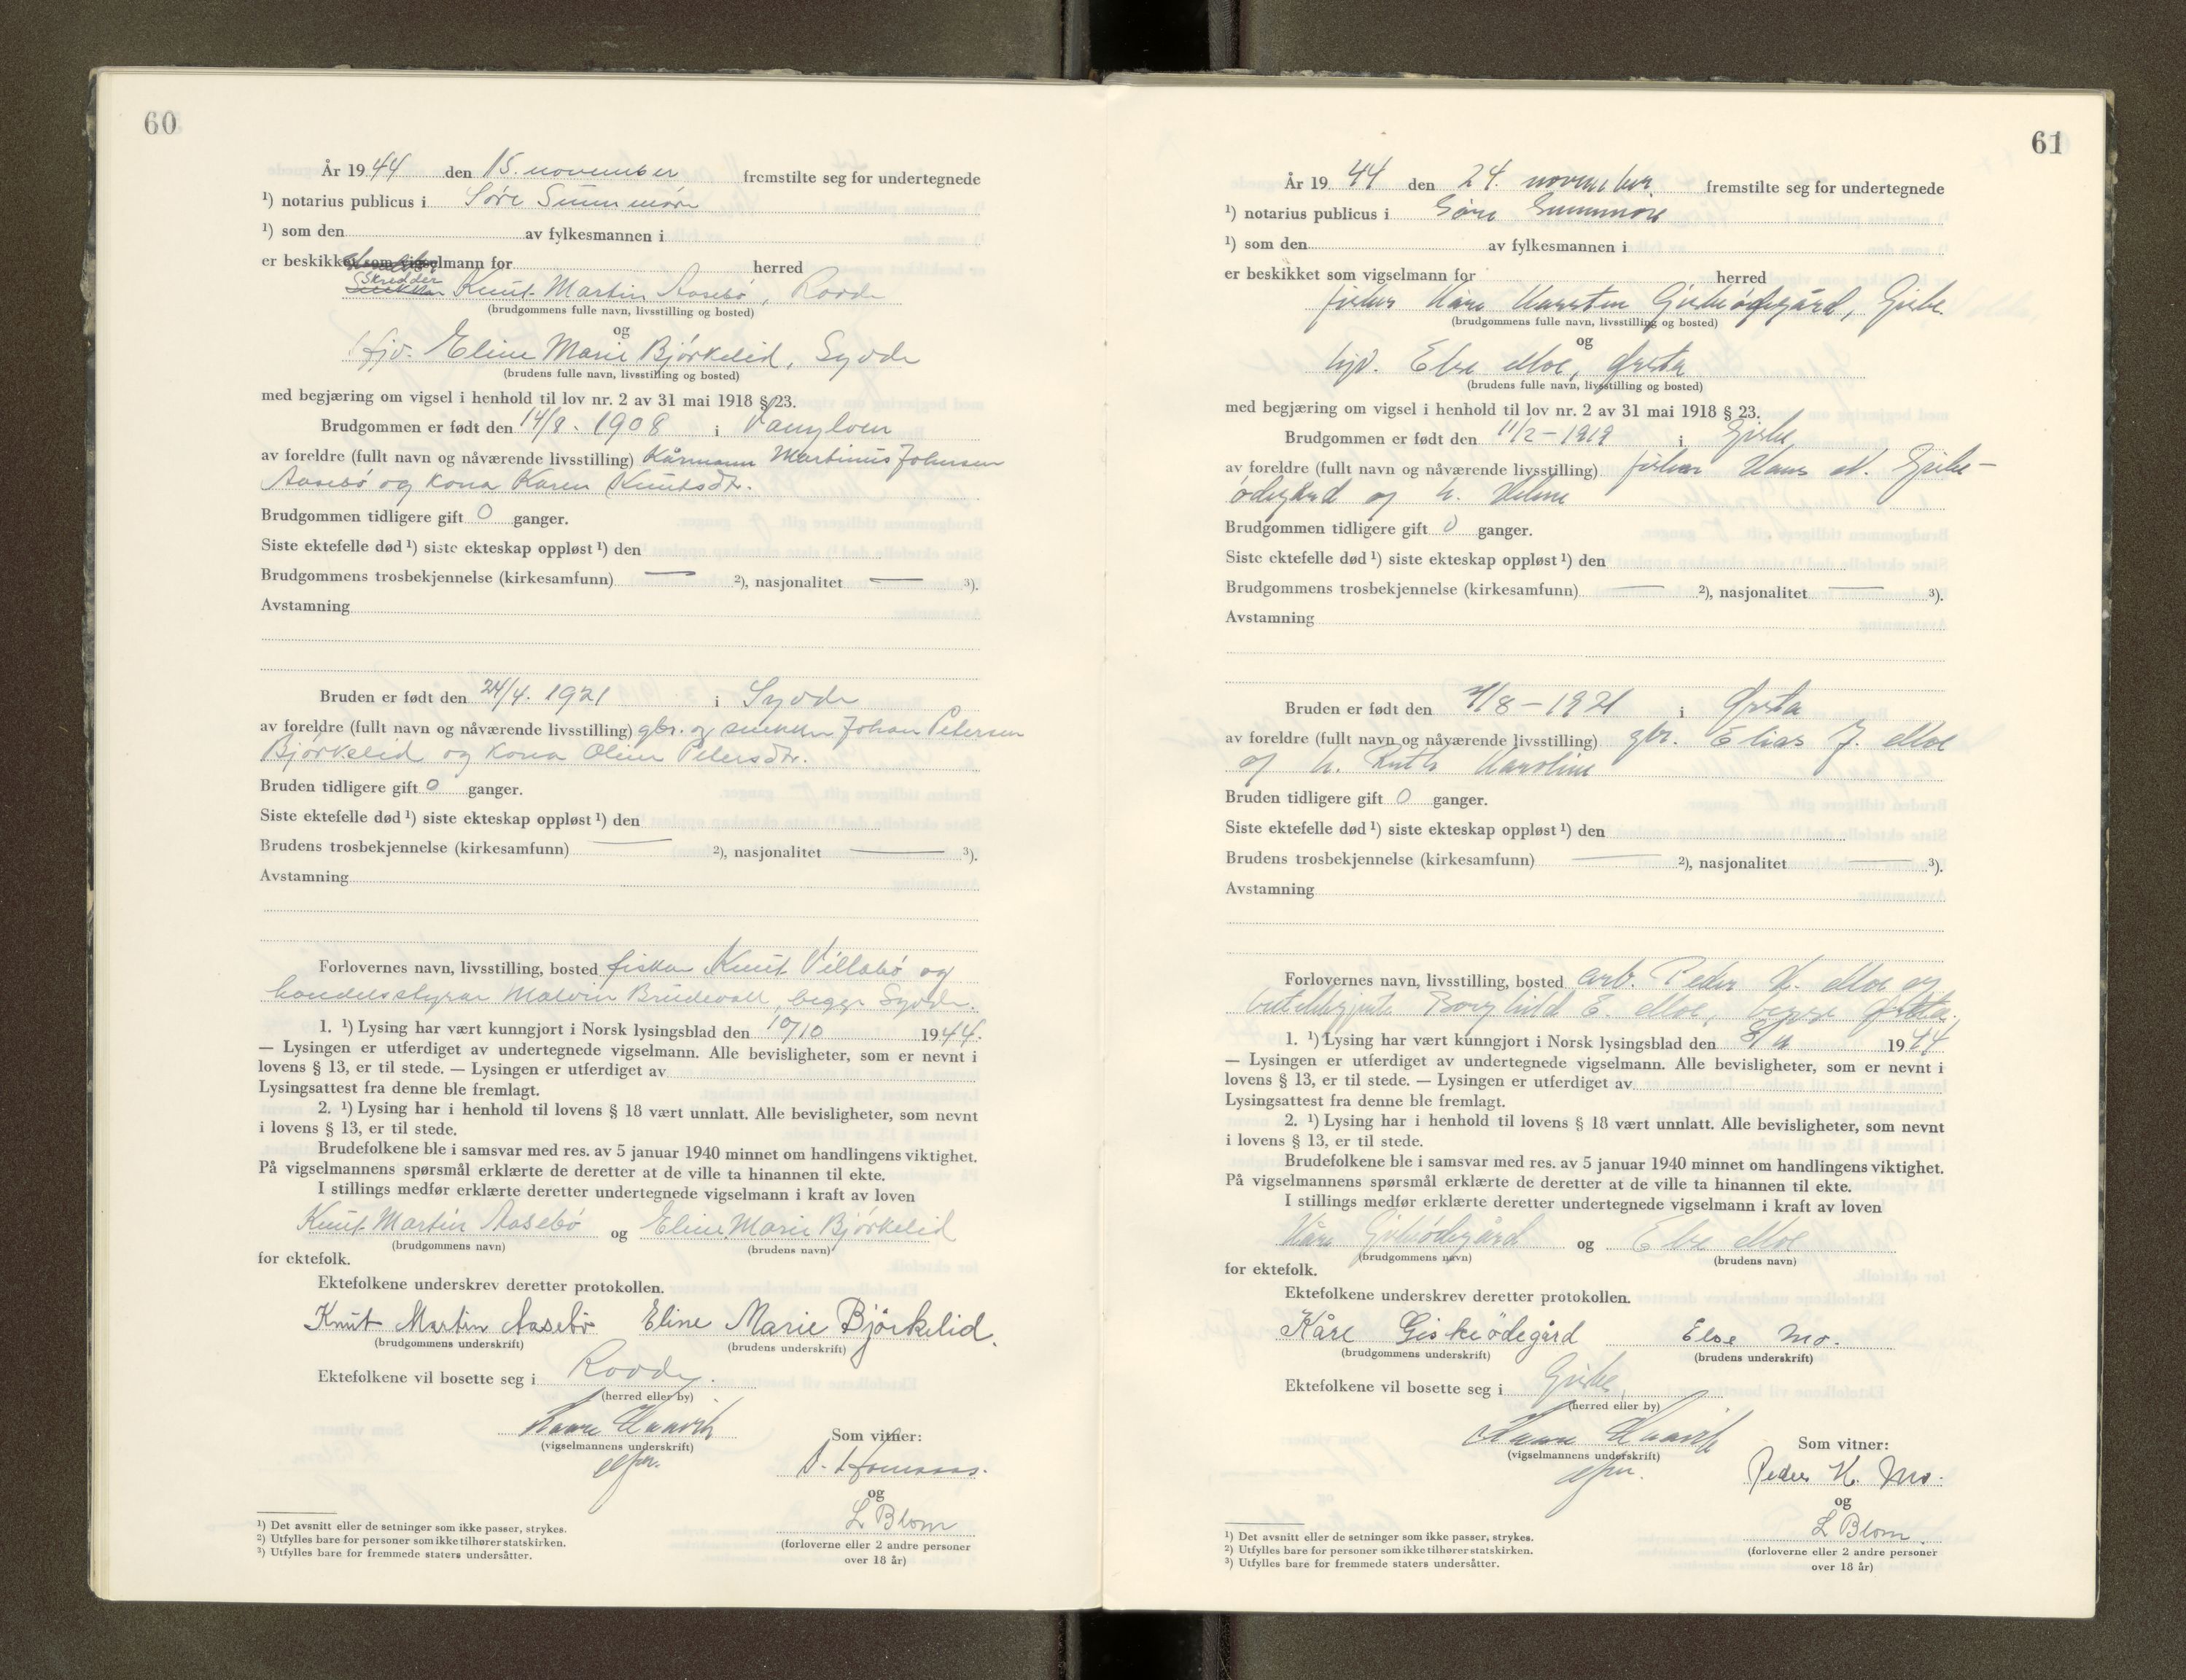 60
År 1944 den 15. november fremstilte seg for undertegnede
¹) notarius publicus i Søre Sunnmøre
¹) som den av fylkesmannen i
er beskikket som vigselmann for herred
Skredder Knut Martin Aasebö, Rovde
(brudgommens fulle navn, livsstilling og bosted)
og
hjv. Eline Marie Björkelid, Syvde
(brudens fulle navn, livsstilling og bosted)
med begjæring om vigsel i henhold til lov nr. 2 av 31 mai 1918 § 23.
Brudgommen er født den 14/8. 1908 i Vanylven
av foreldre (fullt navn og nåværende livsstilling) Kårmann Martinus Johnsen
Aasebö og kona Karen Knutsdtr.
Brudgommen tidligere gift 0 ganger.
Siste ektefelle død ¹) siste ekteskap oppløst ¹) den
Brudgommens trosbekjennelse (kirkesamfunn) — ²), nasjonalitet — ³).
Avstamning
Bruden er født den 24/4. 1921 i Syvde
av foreldre (fullt navn og nåværende livsstilling) gbr. og snekker Johan Petersen
Björkelid og kona Oline Petersdtr.
Bruden tidligere gift 0 ganger.
Siste ektefelle død ¹) siste ekteskap oppløst ¹) den
Brudens trosbekjennelse (kirkesamfunn) — ²), nasjonalitet — ³).
Avstamning
Forlovernes navn, livsstilling, bosted fisker Knut Villabö og
handelsstyrar Malvin Brudevoll, begge Syvde.
1. ¹) Lysing har vært kunngjort i Norsk lysingsblad den 10/10 1944.
— Lysingen er utferdiget av undertegnede vigselmann. Alle bevisligheter, som er nevnt i
lovens § 13, er til stede. — Lysingen er utferdiget av
Lysingsattest fra denne ble fremlagt.
2. ¹) Lysing har i henhold til lovens § 18 vært unnlatt. Alle bevisligheter, som nevnt
i lovens § 13, er til stede.
Brudefolkene ble i samsvar med res. av 5 januar 1940 minnet om handlingens viktighet.
På vigselmannens spørsmål erklærte de deretter at de ville ta hinannen til ekte.
I stillings medfør erklærte deretter undertegnede vigselmann i kraft av loven
Knut Martin Aasebö og Eline Marie Björkelid
(brudgommens navn) (brudens navn)
for ektefolk.
Ektefolkene underskrev deretter protokollen.
Knut Martin Aasebö Eline Marie Björkelid.
(brudgommens underskrift) (brudens underskrift)
Ektefolkene vil bosette seg i Rovde.
(herred eller by)
(vigselmannens underskrift)
Som vitner:
og
L Blom
(forloverne eller 2 andre personer
over 18 år)
¹) Det avsnitt eller de setninger som ikke passer, strykes.
²) Utfylles bare for personer som ikke tilhører statskirken.
³) Utfylles bare for fremmede staters undersåtter.
61
År 1944 den 24. november fremstilte seg for undertegnede
¹) notarius publicus i Søre Sunnmøre
¹) som den av fylkesmannen i
er beskikket som vigselmann for herred
fisker Kåre Karsten Giskeødegård, Giske
(brudgommens fulle navn, livsstilling og bosted)
og
hjv. Else Moe, Ørsta
(brudens fulle navn, livsstilling og bosted)
med begjæring om vigsel i henhold til lov nr. 2 av 31 mai 1918 § 23.
Brudgommen er født den 11/2 - 1919 i Giske
av foreldre (fullt navn og nåværende livsstilling) fisker Hans N. Giske-
ødegård og h.
Brudgommen tidligere gift 0 ganger.
Siste ektefelle død ¹) siste ekteskap oppløst ¹) den
Brudgommens trosbekjennelse (kirkesamfunn) — ²), nasjonalitet — ³).
Avstamning
Bruden er født den /8 - 1921 i Ørsta
av foreldre (fullt navn og nåværende livsstilling) gbr. Elias J. Moe
og h. Ruth Karoline
Bruden tidligere gift 0 ganger.
Siste ektefelle død ¹) siste ekteskap oppløst ¹) den
Brudens trosbekjennelse (kirkesamfunn) — ²), nasjonalitet — ³).
Avstamning
Forlovernes navn, livsstilling, bosted arb. Peder K. Moe og
Borghild E. Moe, begge Ørsta.
1. ¹) Lysing har vært kunngjort i Norsk lysingsblad den 8/11 1944
— Lysingen er utferdiget av undertegnede vigselmann. Alle bevisligheter, som er nevnt i
lovens § 13, er til stede. — Lysingen er utferdiget av
Lysingsattest fra denne ble fremlagt.
2. ¹) Lysing har i henhold til lovens § 18 vært unnlatt. Alle bevisligheter, som nevnt
i lovens § 13, er til stede.
Brudefolkene ble i samsvar med res. av 5 januar 1940 minnet om handlingens viktighet.
På vigselmannens spørsmål erklærte de deretter at de ville ta hinannen til ekte.
I stillings medfør erklærte deretter undertegnede vigselmann i kraft av loven
Kåre Giskeødegård og Else Moe
(brudgommens navn) (brudens navn)
for ektefolk.
Ektefolkene underskrev deretter protokollen.
Kåre Giskeödegård Else Mo.
(brudgommens underskrift) (brudens underskrift)
Ektefolkene vil bosette seg i Giske,
(herred eller by)
(vigselmannens underskrift)
Som vitner:
Peder K. Mo.
og
L Blom
(forloverne eller 2 andre personer
over 18 år)
¹) Det avsnitt eller de setninger som ikke passer, strykes.
²) Utfylles bare for personer som ikke tilhører statskirken.
³) Utfylles bare for fremmede staters undersåtter.